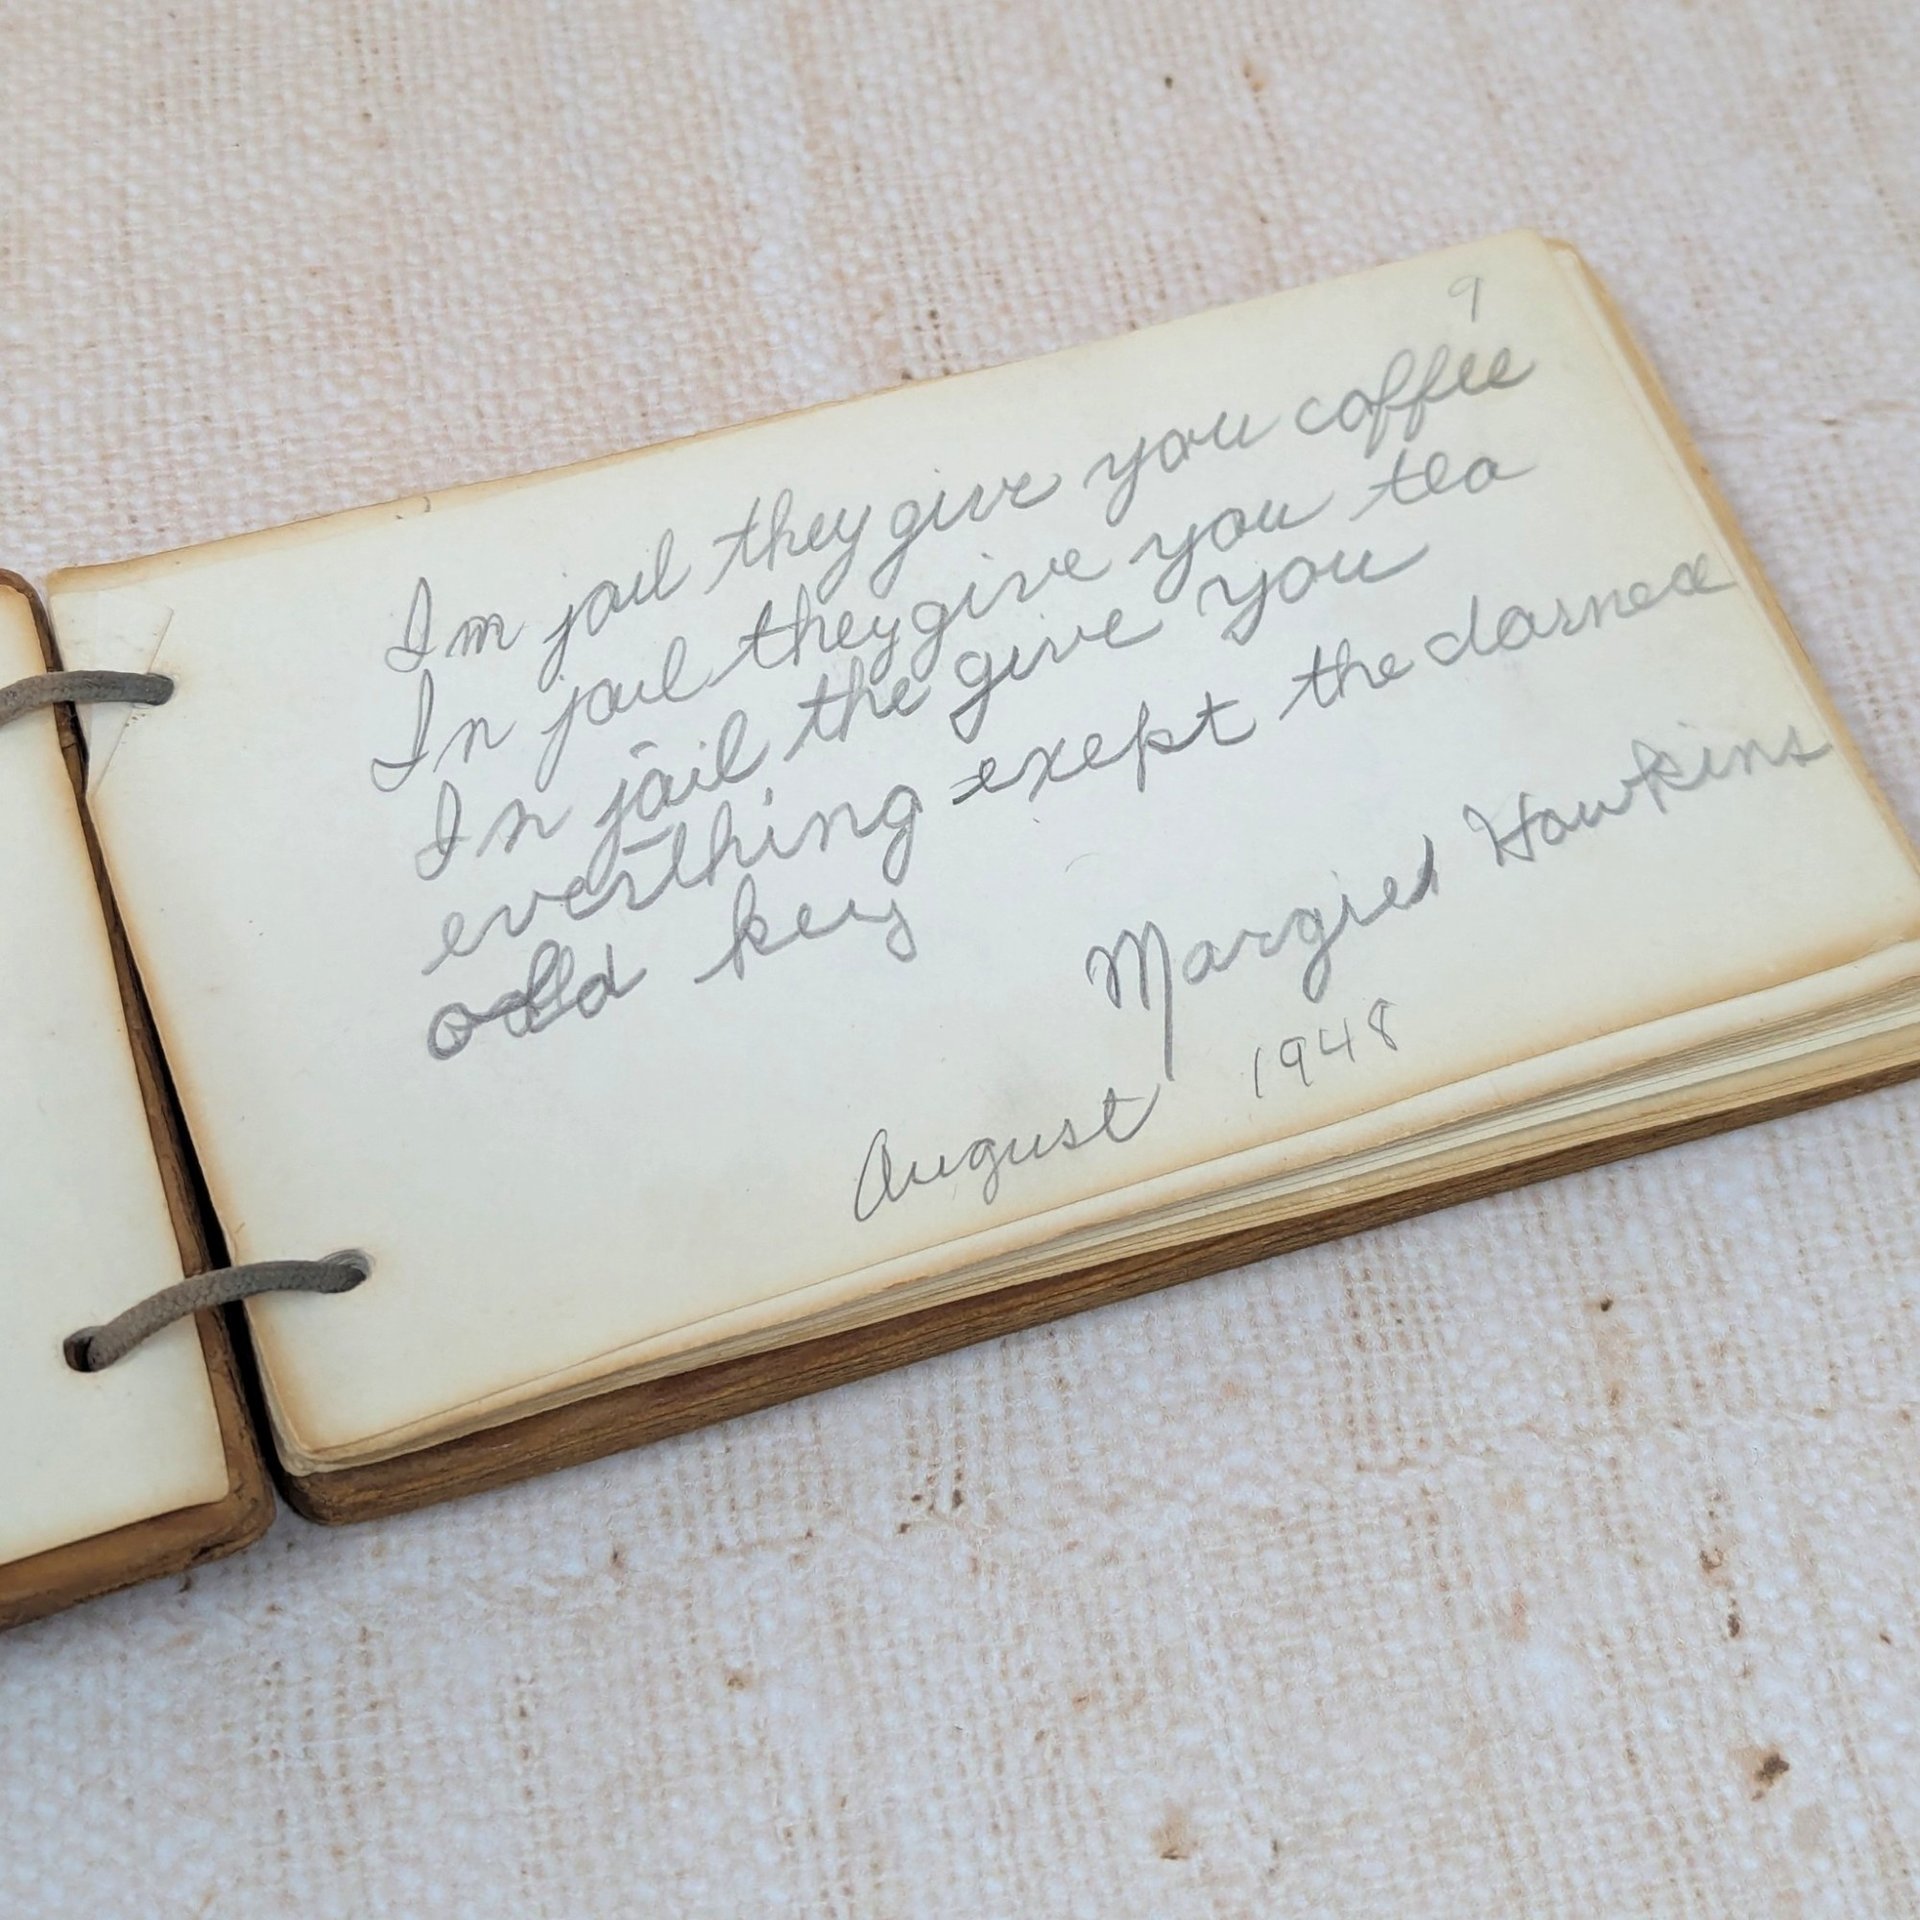 9
Im jail they give you coffee
In jail they give you tea
In jail the give you
everthing exept the darned
old key
Margied Hawkins
August 1948